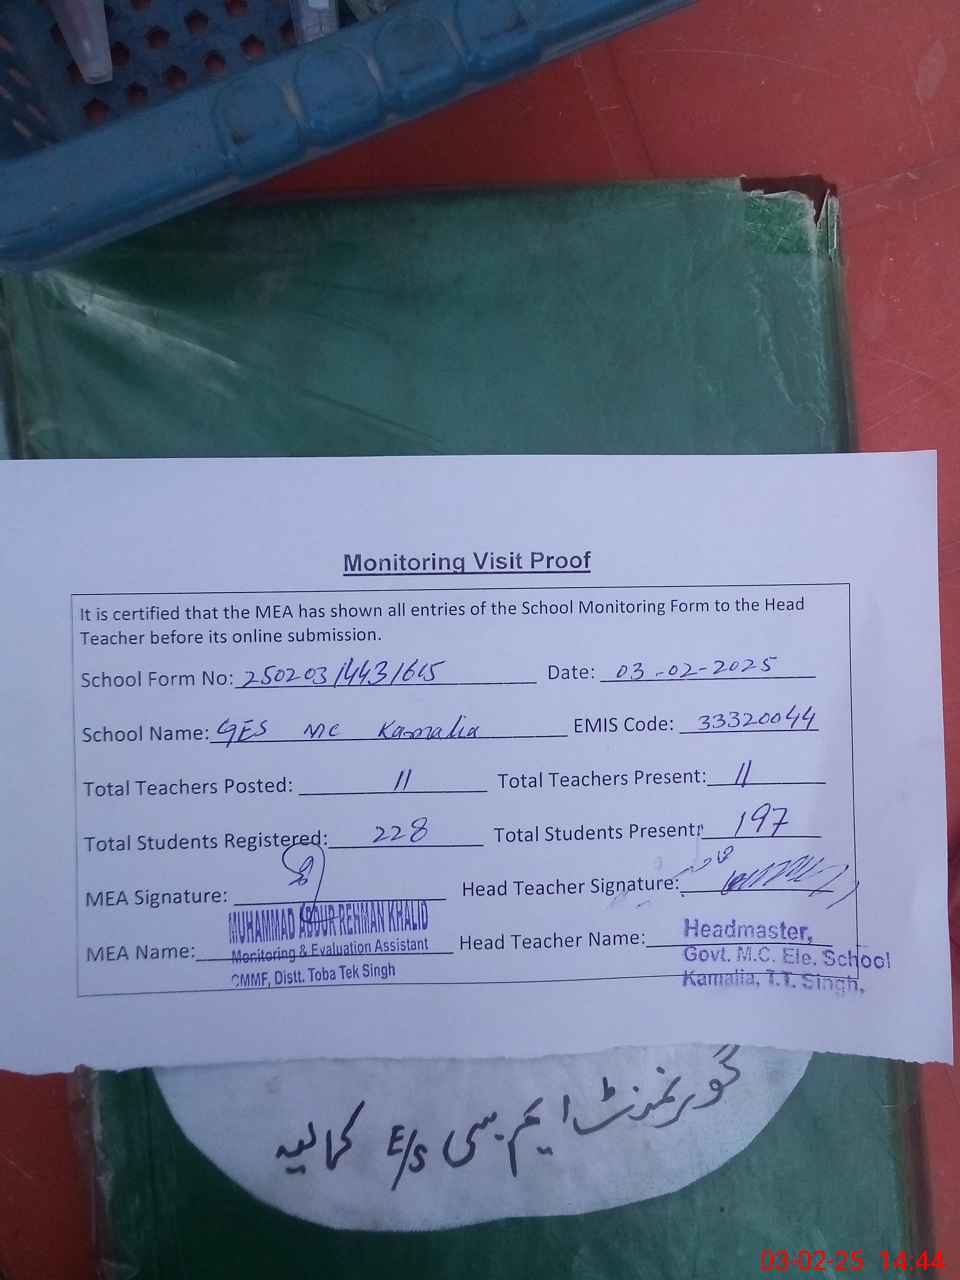 Monitoring Visit Proof
It is certified that the MEA has shown all entries of the School Monitoring Form to the Head
Teacher before its online submission.
School Form No: 250203/443/615 Date: 03-02-2025
School Name: GES MC Kamalia EMIS Code: 33320044
Total Teachers Posted: 11 Total Teachers Present: 11
Total Students Registered: 228 Total Students Present: 197
MEA Signature: Head Teacher Signature:
MUHAMMAD ABDUR REHMAN KHALID
MEA Name: Monitoring & Evaluation Assistant Head Teacher Name: Headmaster,
CMMF, Distt. Toba Tek Singh Govt. M.C. Ele. School
Kamalia, T.T. Singh,
گورنمنٹ ایم سی E/S کمالیہ
03-02-25 14:44